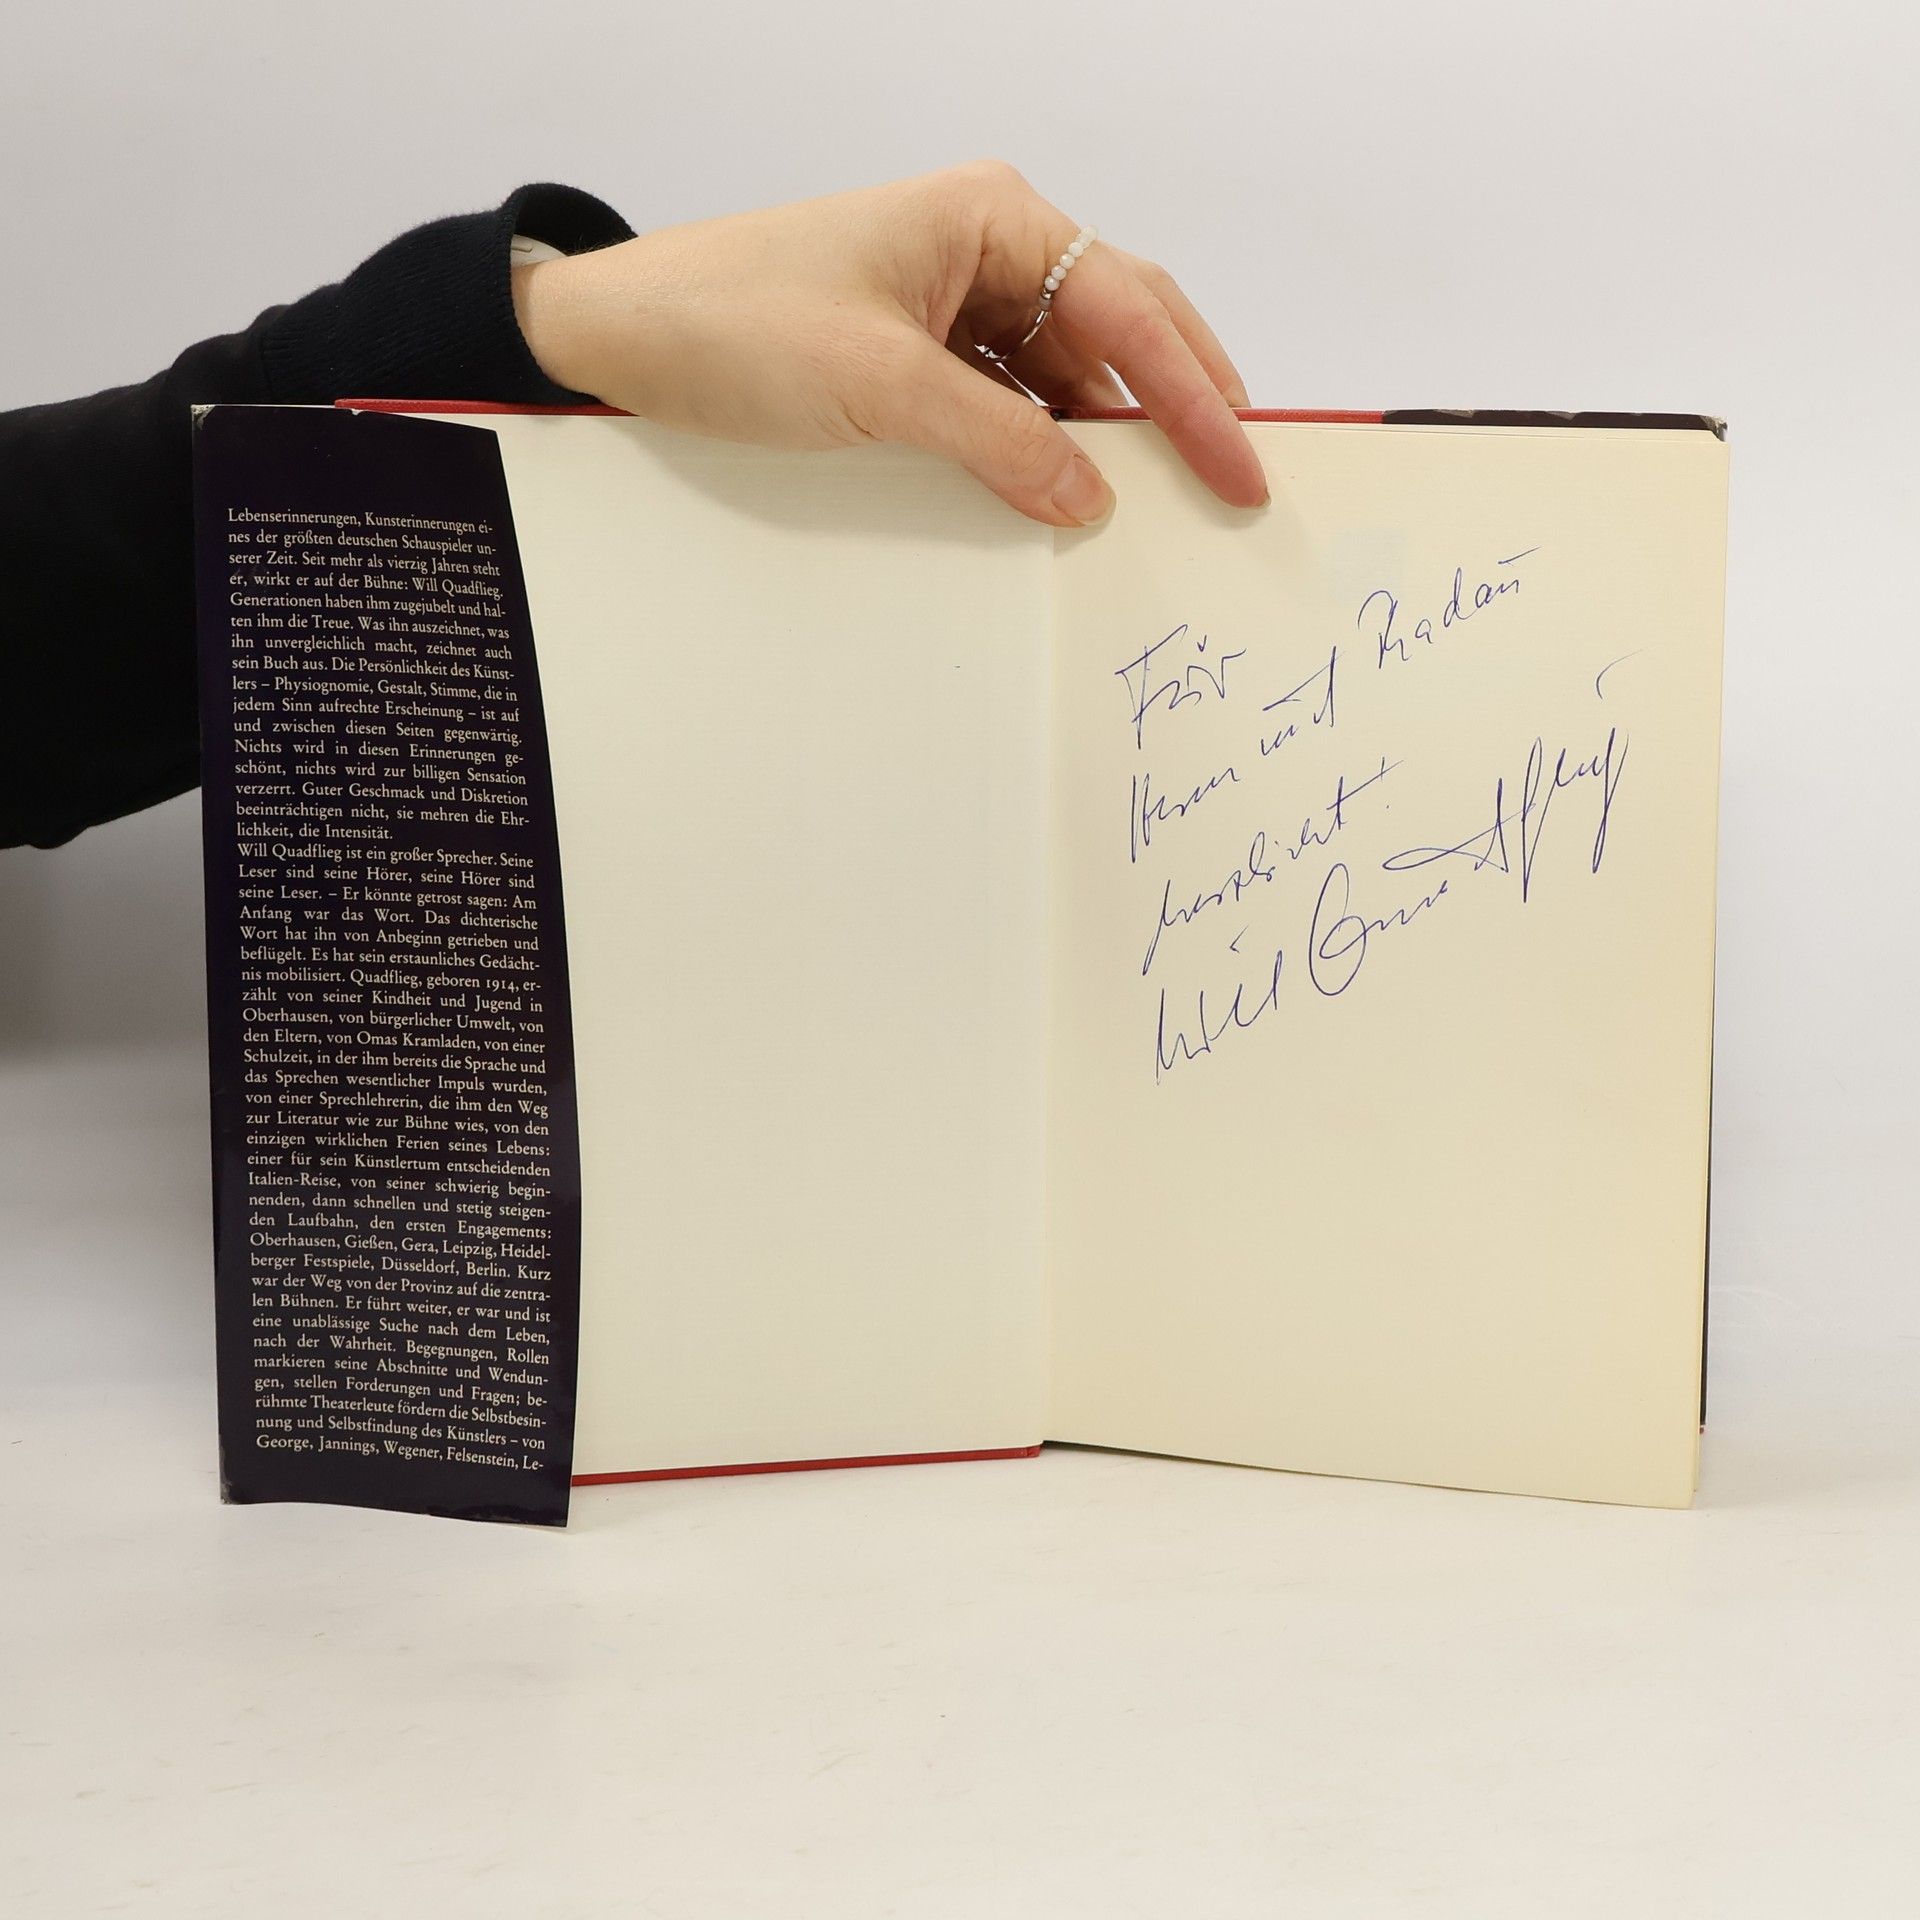 Lebenserinnerungen, Kunsterinnerungen ei-
nes der größten deutschen Schauspieler un-
serer Zeit. Seit mehr als vierzig Jahren steht
er, wirkt er auf der Bühne: Will Quadflieg.
Generationen haben ihm zugejubelt und hal-
ten ihm die Treue. Was ihn auszeichnet, was
ihn unvergleichlich macht, zeichnet auch
sein Buch aus. Die Persönlichkeit des Künst-
lers – Physiognomie, Gestalt, Stimme, die in
jedem Sinn aufrechte Erscheinung – ist auf
und zwischen diesen Seiten gegenwärtig.
Nichts wird in diesen Erinnerungen ge-
schönt, nichts wird zur billigen Sensation
verzerrt. Guter Geschmack und Diskretion
beeinträchtigen nicht, sie mehren die Ehr-
lichkeit, die Intensität.
Will Quadflieg ist ein großer Sprecher. Seine
Leser sind seine Hörer, seine Hörer sind
seine Leser. – Er könnte getrost sagen: Am
Anfang war das Wort. Das dichterische
Wort hat ihn von Anbeginn getrieben und
beflügelt. Es hat sein erstaunliches Gedächt-
nis mobilisiert. Quadflieg, geboren 1914, er-
zählt von seiner Kindheit und Jugend in
Oberhausen, von bürgerlicher Umwelt, von
den Eltern, von Omas Kramladen, von einer
Schulzeit, in der ihm bereits die Sprache und
das Sprechen wesentlicher Impuls wurden,
von einer Sprechlehrerin, die ihm den Weg
zur Literatur wie zur Bühne wies, von den
einzigen wirklichen Ferien seines Lebens:
einer für sein Künstlertum entscheidenden
Italien-Reise, von seiner schwierig begin-
nenden, dann schnellen und stetig steigen-
den Laufbahn, den ersten Engagements:
Oberhausen, Gießen, Gera, Leipzig, Heidel-
berger Festspiele, Düsseldorf, Berlin. Kurz
war der Weg von der Provinz auf die zentra-
len Bühnen. Er führt weiter, er war und ist
eine unablässige Suche nach dem Leben,
nach der Wahrheit. Begegnungen, Rollen
markieren seine Abschnitte und Wendun-
gen, stellen Forderungen und Fragen; be-
rühmte Theaterleute fördern die Selbstbesin-
nung und Selbstfindung des Künstlers – von
George, Jannings, Wegener, Felsenstein, Le-
Für
Herrn und Radau
herzlichst!
Will Quadflieg